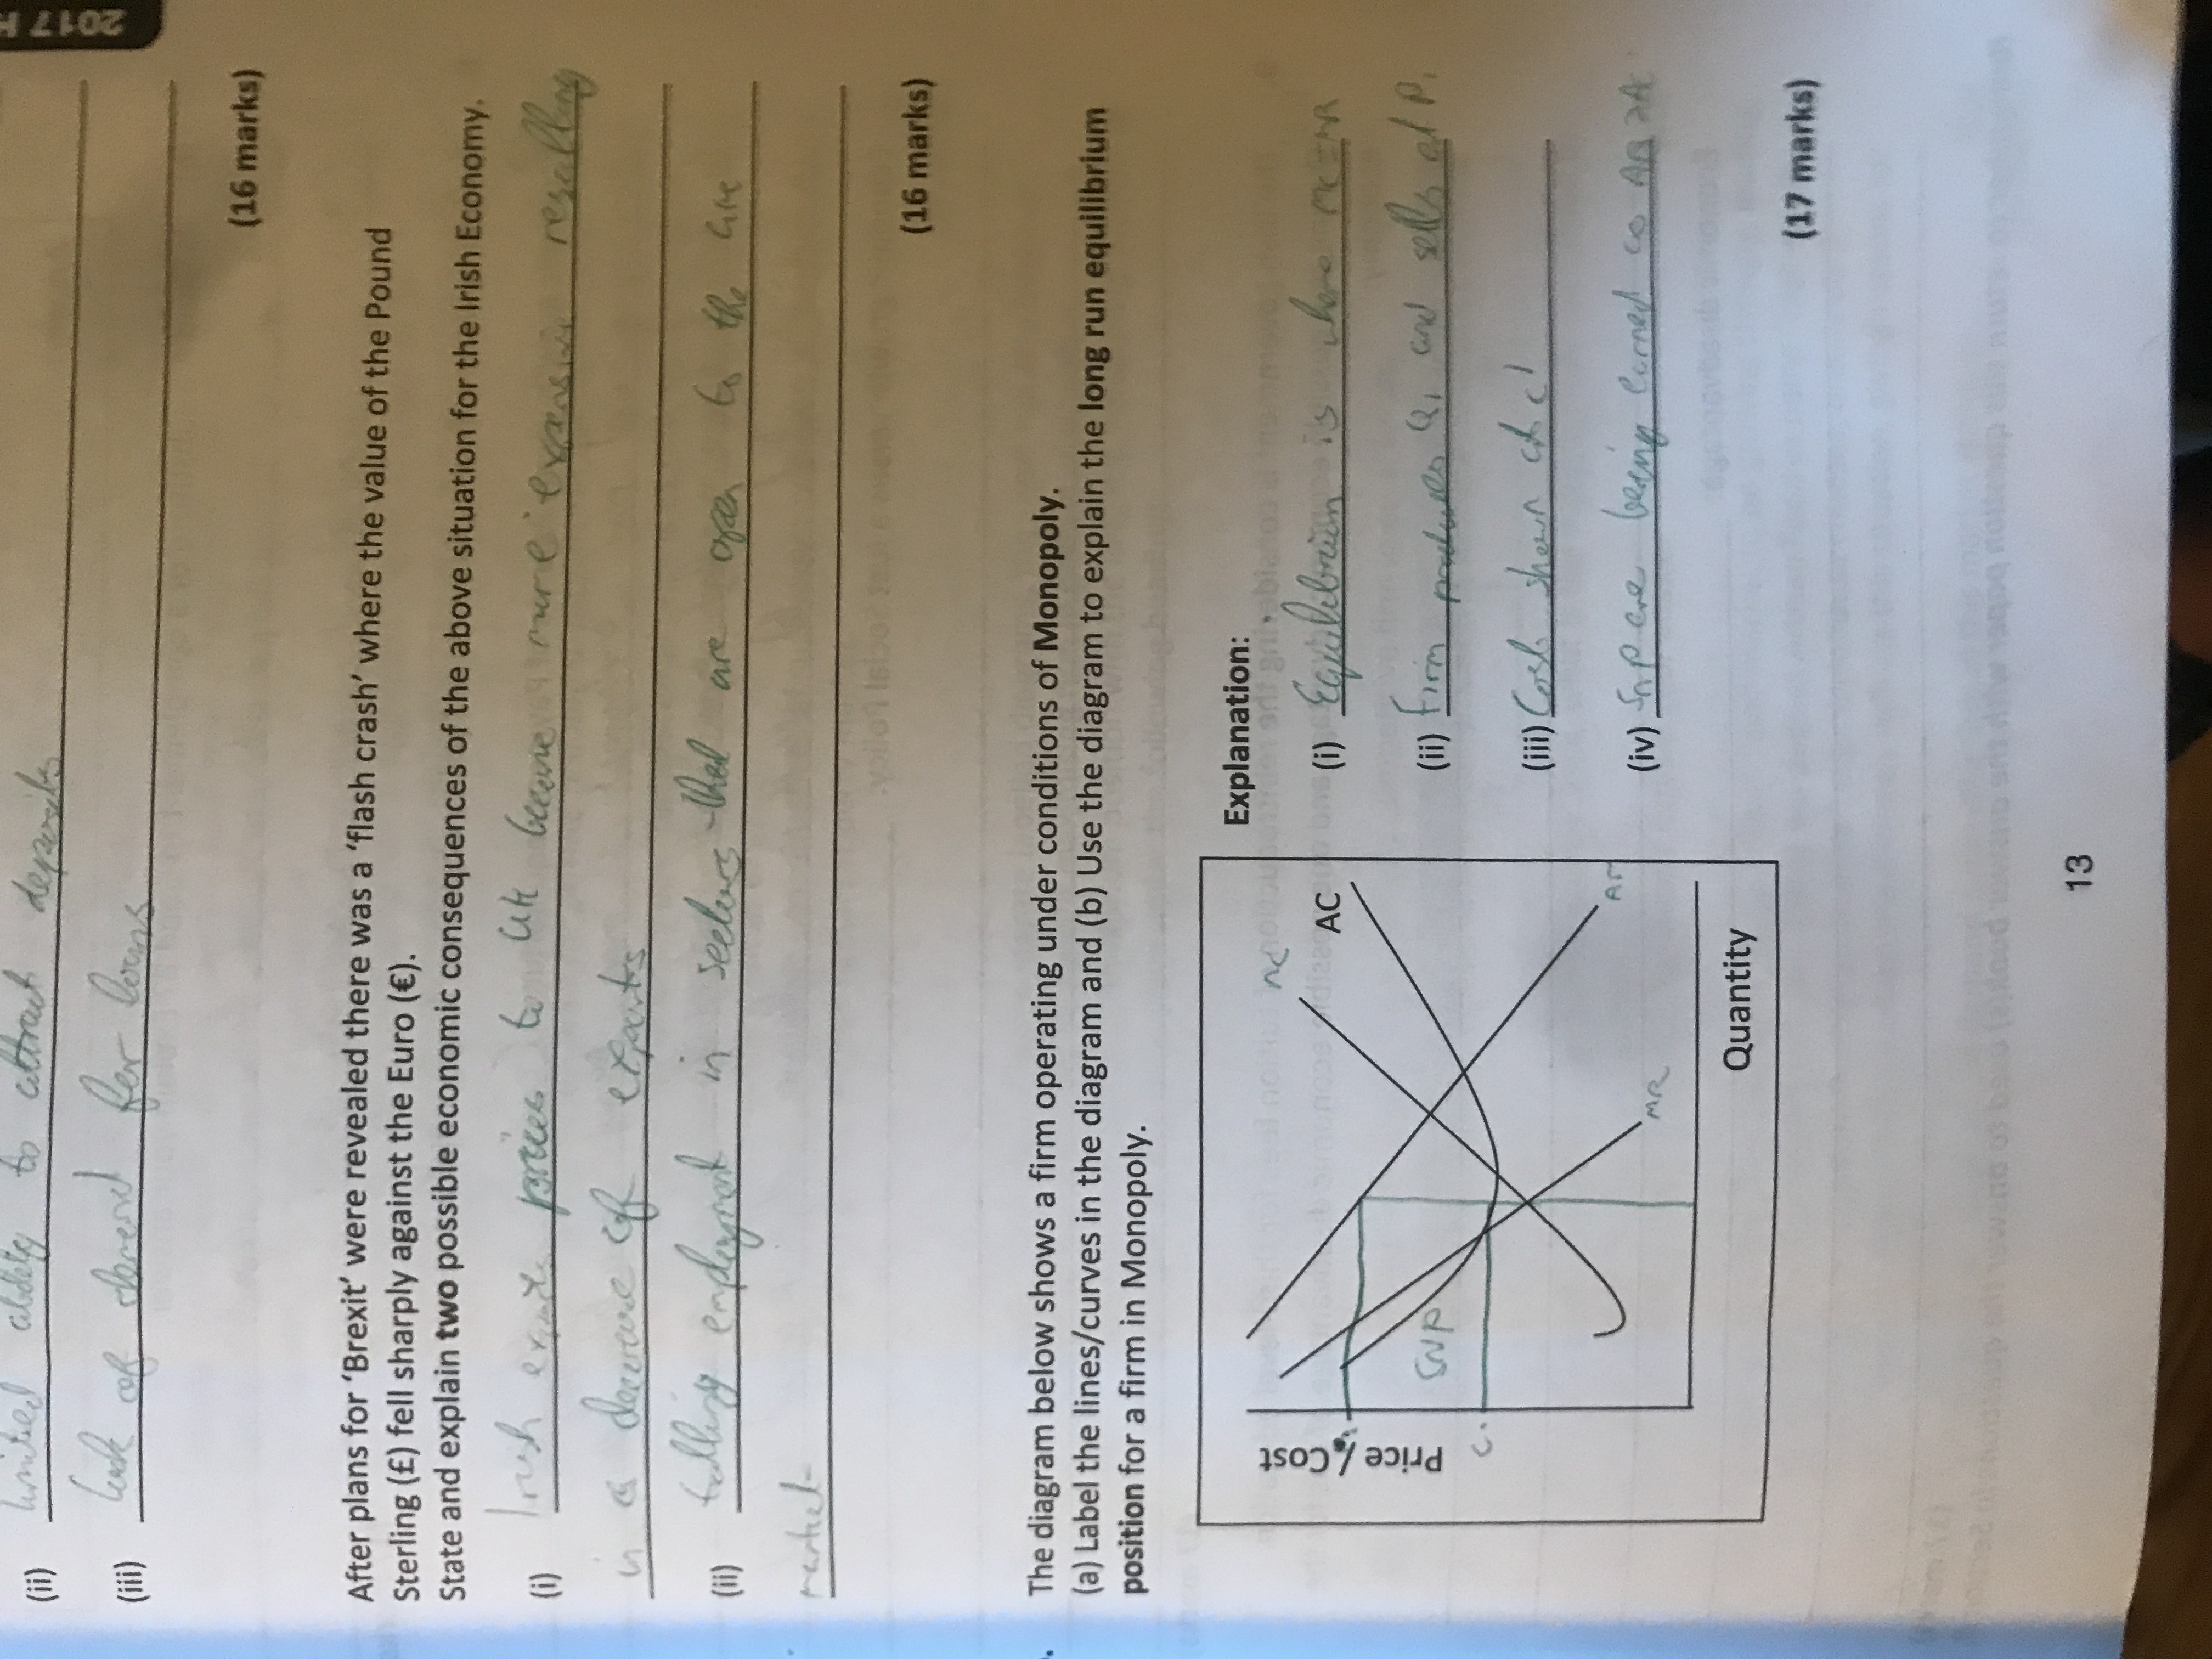 2017 H
(ii) limited ability to attract deposits
(iii) Lack of demand for loans
(16 marks)
After plans for ‘Brexit’ were revealed there was a ‘flash crash’ where the value of the Pound
Sterling (£) fell sharply against the Euro (€).
State and explain two possible economic consequences of the above situation for the Irish Economy.
(i) Irish exports prices to UK become more expensive resulting
in a decrease of exports
(ii) falling employment in sectors that are open to the
market
(16 marks)
The diagram below shows a firm operating under conditions of Monopoly.
(a) Label the lines/curves in the diagram and (b) Use the diagram to explain the long run equilibrium
position for a firm in Monopoly.
Price / Cost
MC
AC
SNP
C
AR
MR
Quantity
Explanation:
(i) Equilibrium is where MC=MR
(ii) Firm produces Q1 and sells at P1
(iii) Cost shown at c1
(iv) SNP are being earned as AR >A
(17 marks)
13